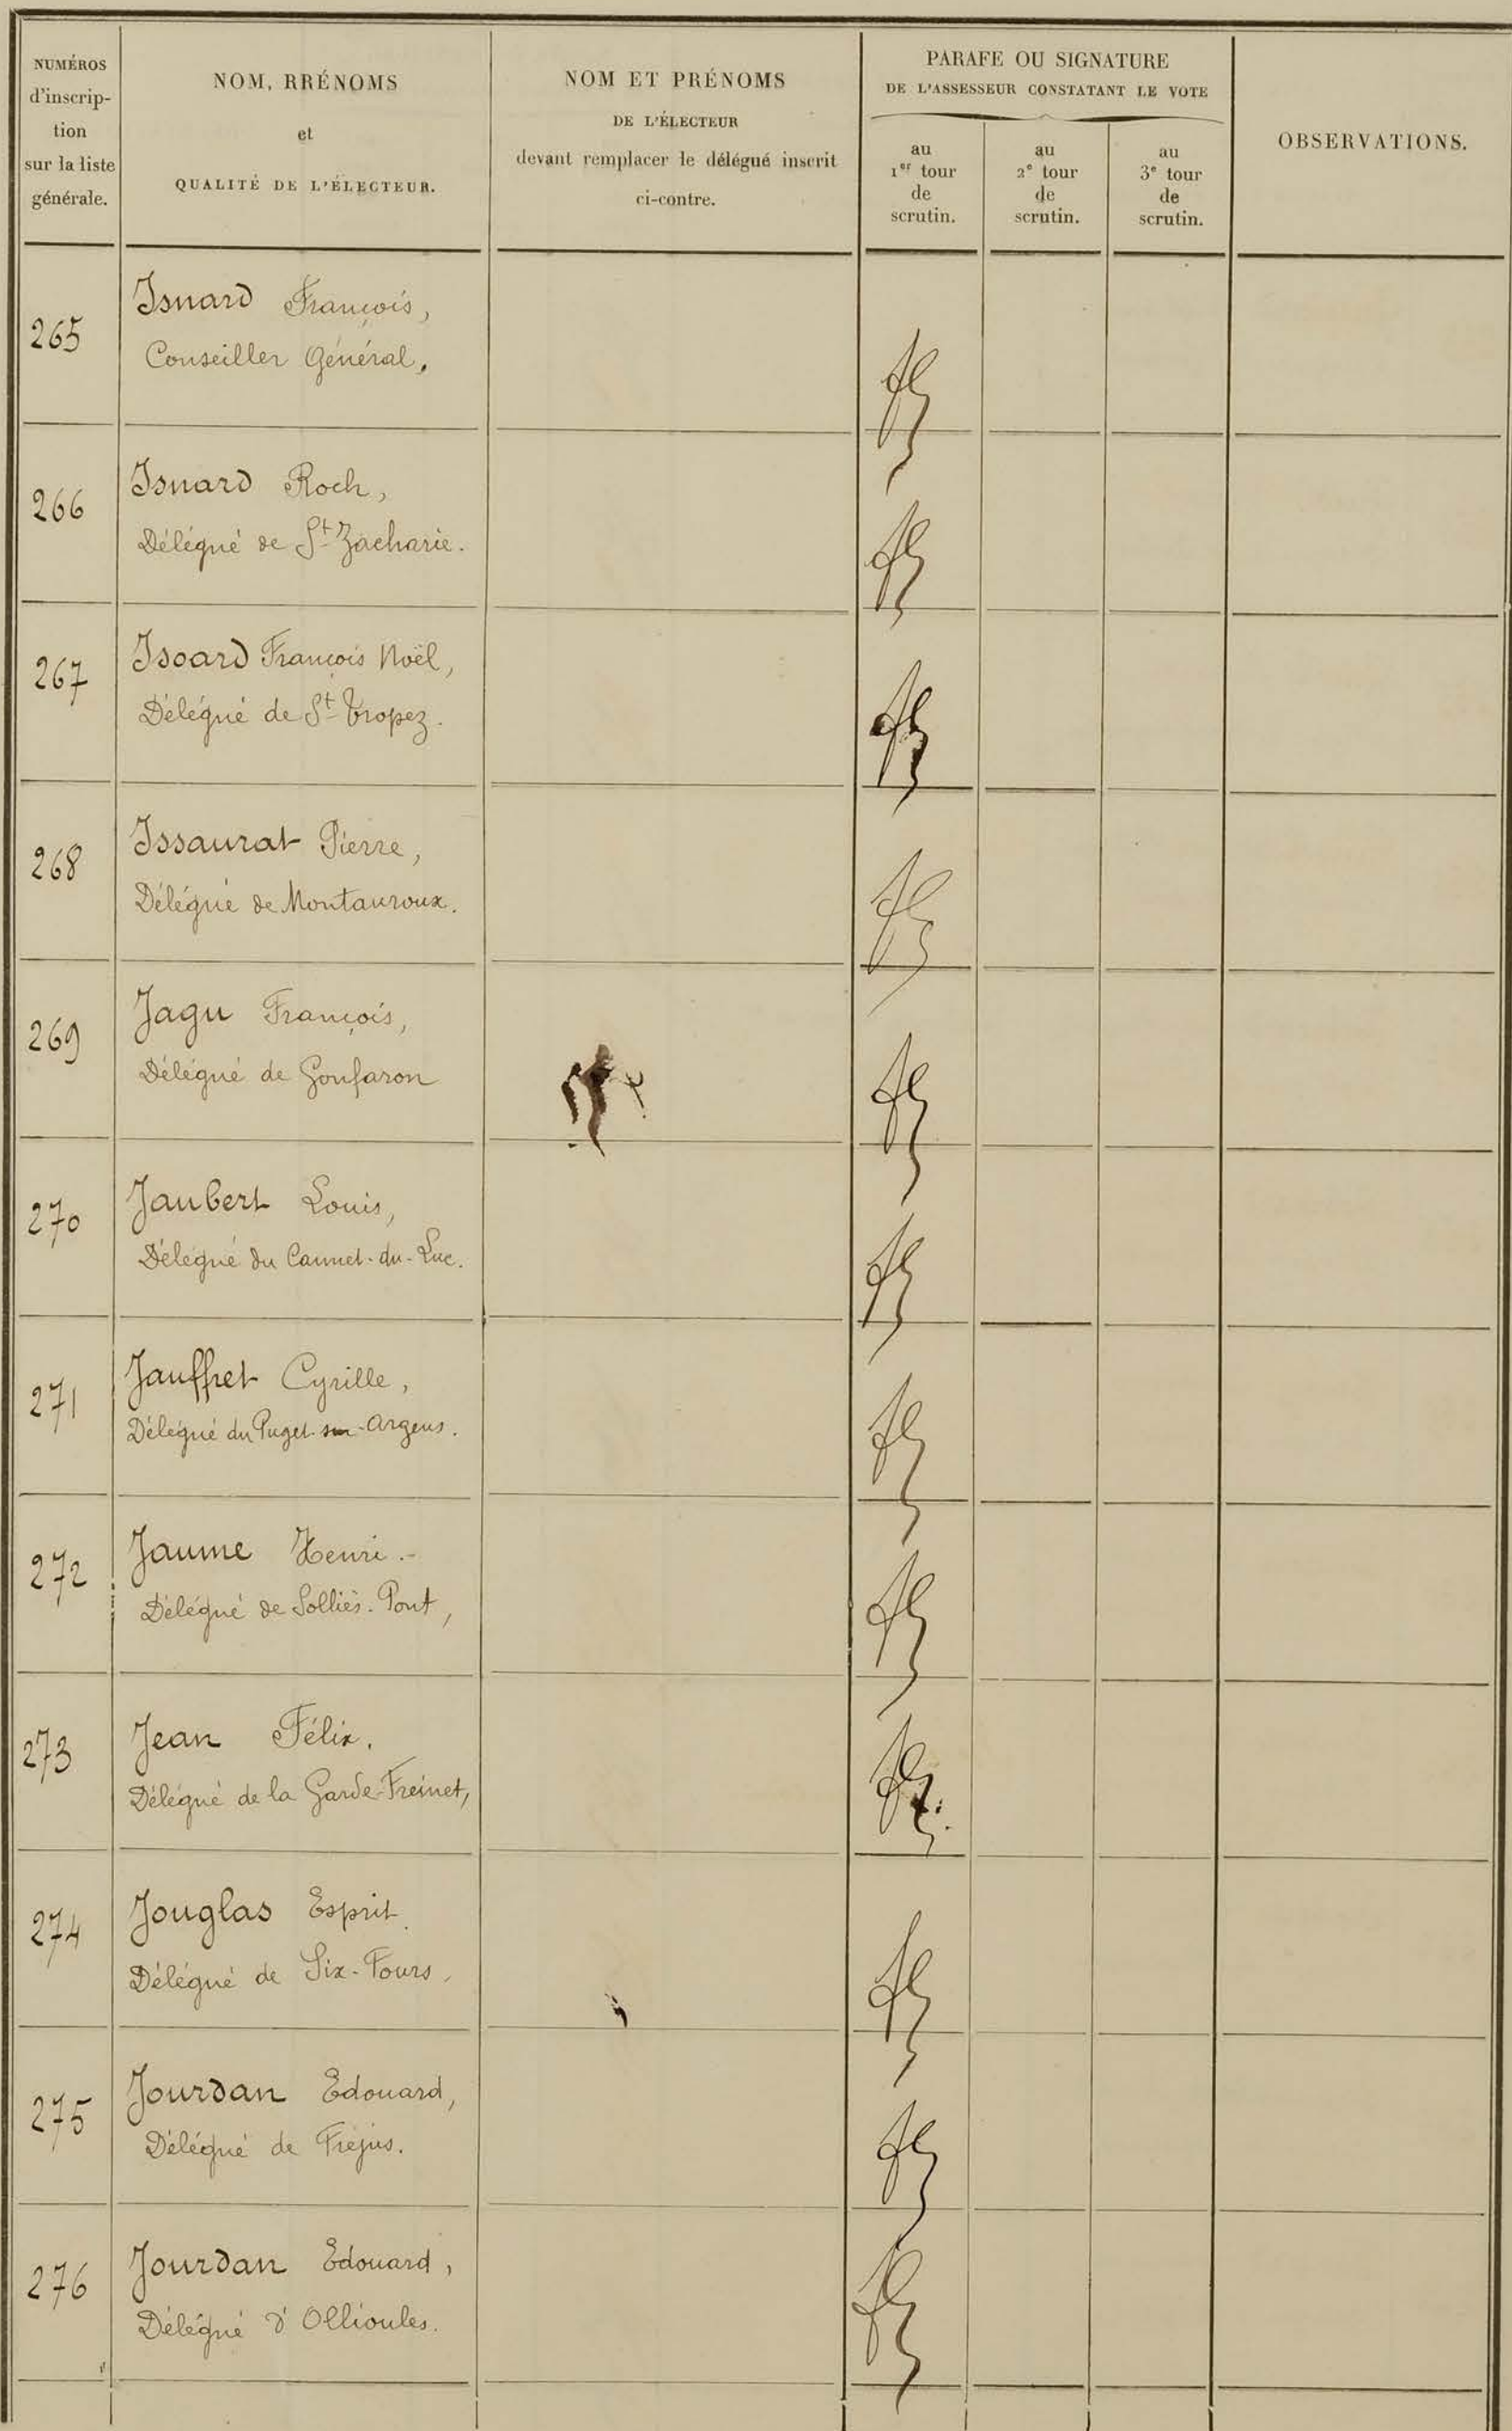 NUMÉROS
d'inscrip-
tion
sur la liste
générale.
NOM, RRÉNOMS
et
QUALITÉ DE L'ÉLECTEUR.
NOM ET PRÉNOMS
DE L'ÉLECTEUR
devant remplacer le délégué inscrit
ci-contre.
PARAFE OU SIGNATURE
DE L'ASSESSEUR CONSTATANT LE VOTE
au
1er tour
de
scrutin.
au
2e tour
de
scrutin.
au
3e tour
de
scrutin.
OBSERVATIONS.
265
Isnard François,
Conseiller Général.
266
Isnard Roch,
Délégué de St Zacharie.
267
Isoard François Noël,
Délégué de St Tropez.
268
Issaurat Pierre,
Délégué de Montauroux.
269
Jagu François,
Délégué de Gonfaron
270
Jaubert Louis,
Délégué du Cannet-du-Luc.
271
Jauffret Cyrille,
Délégué du Puget-sur-Argens.
272
Jaume Henri.-
Délégué de Solliès-Pont,
273
Jean Félix.
Délégué de la Garde-Freinet,
274
Jouglas Esprit.
Délégué de Six-Fours,
275
Jourdan Edouard,
Délégué de Fréjus.
276
Jourdan Edouard,
Délégué d'Ollioules.